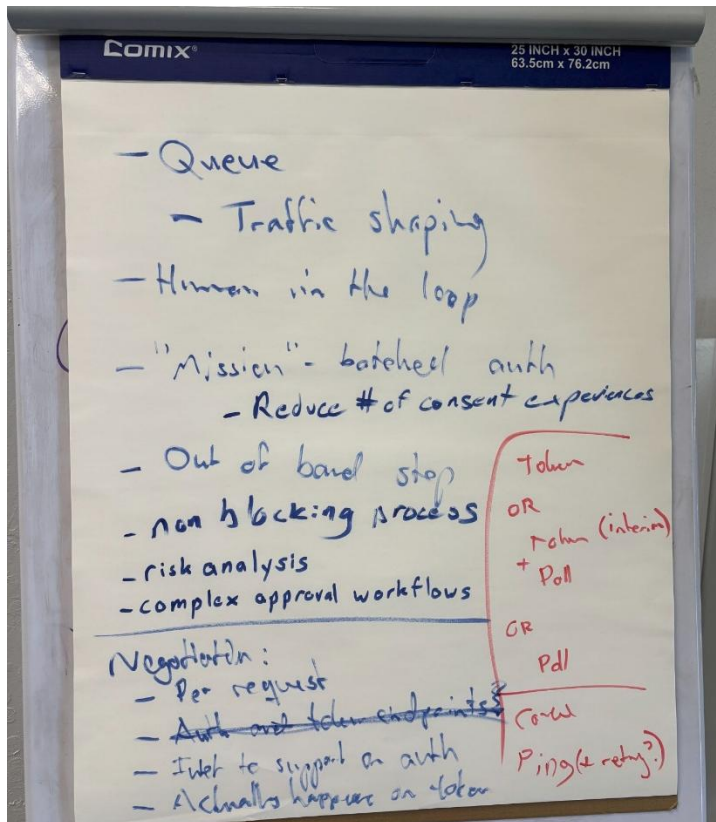 Comix®
25 INCH x 30 INCH
63.5cm x 76.2cm
- Queue
- Traffic shaping
- Human in the loop
- "Mission" - batched auth
- Reduce # of consent experiences
- Out of band step
- non blocking process
- risk analysis
- complex approval workflows
Negotiation:
- Per request
- Auth and token endpoints
- to support on auth
- Actually happens on token
token
OR
token (interim)
+ Poll
OR
Poll
Ping (& retry?)